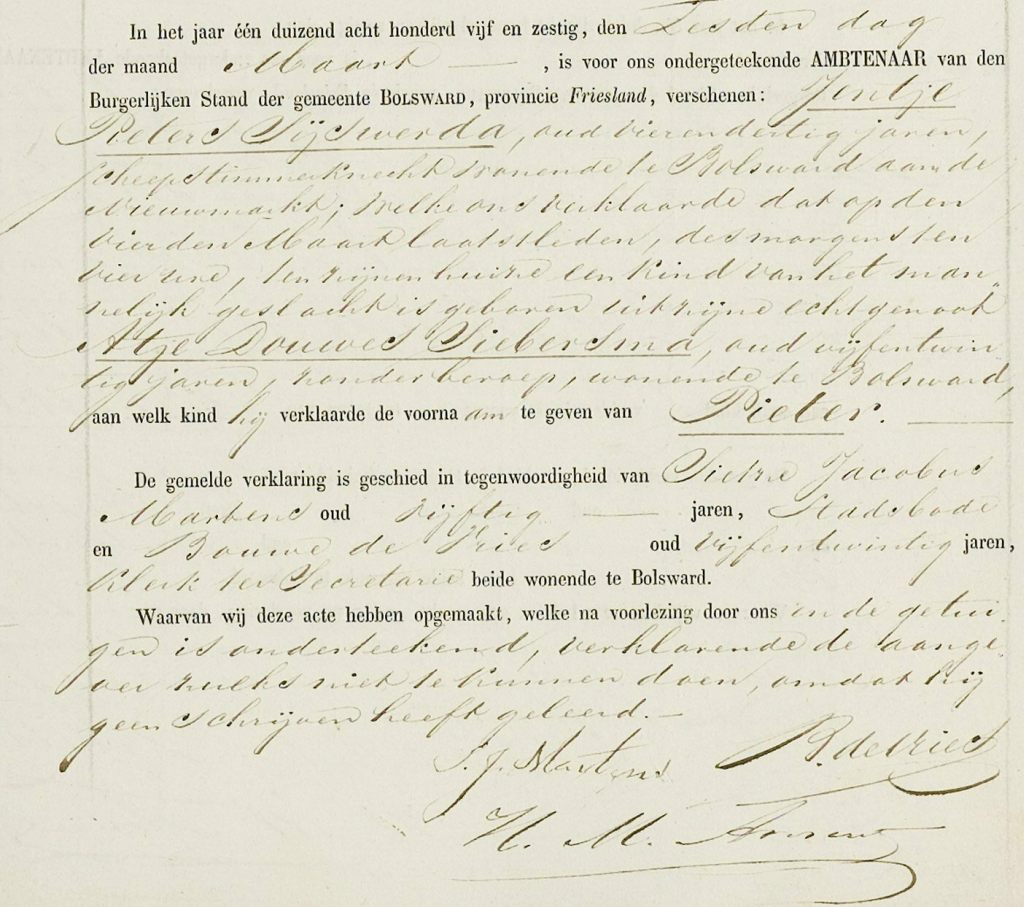 In het jaar één duizend acht honderd vijf en zestig, den Zesden dag
der maand Maart — , is voor ons ondergeteekende AMBTENAAR van den
Burgerlijken Stand der gemeente BOLSWARD, provincie Friesland, verschenen: Jentje
Pieters Sijswerda, oud vierendertig jaren,
scheepstimmerknecht wonende te Bolsward aan de
Nieuwmarkt; welke ons verklaarde dat op den
vierden Maart laatstleden, des morgens ten
vier ure, ten zijnen huize een kind van het man„
nelijk geslacht is geboren uit zijne echtgenoot
Atje Douwes Siebersma, oud vijfentwin
tig jaren, zonder beroep, wonende te Bolsward,
aan welk kind hij verklaarde de voornaam te geven van Pieter. —
De gemelde verklaring is geschied in tegenwoordigheid van Sietze Jacobus
Martens oud vijftig — jaren, Stadsbode
en Bouwe de Vries oud vijfentwintig jaren,
Klerk ter Secretarie beide wonende te Bolsward.
Waarvan wij deze acte hebben opgemaakt, welke na voorlezing door ons en de getui
gen is onderteekend, verklarende de aange
ver zulks niet te kunnen doen, omdat hij
geen schrijven heeft geleerd. —
S. J. Martens B. de Vries
H. M.